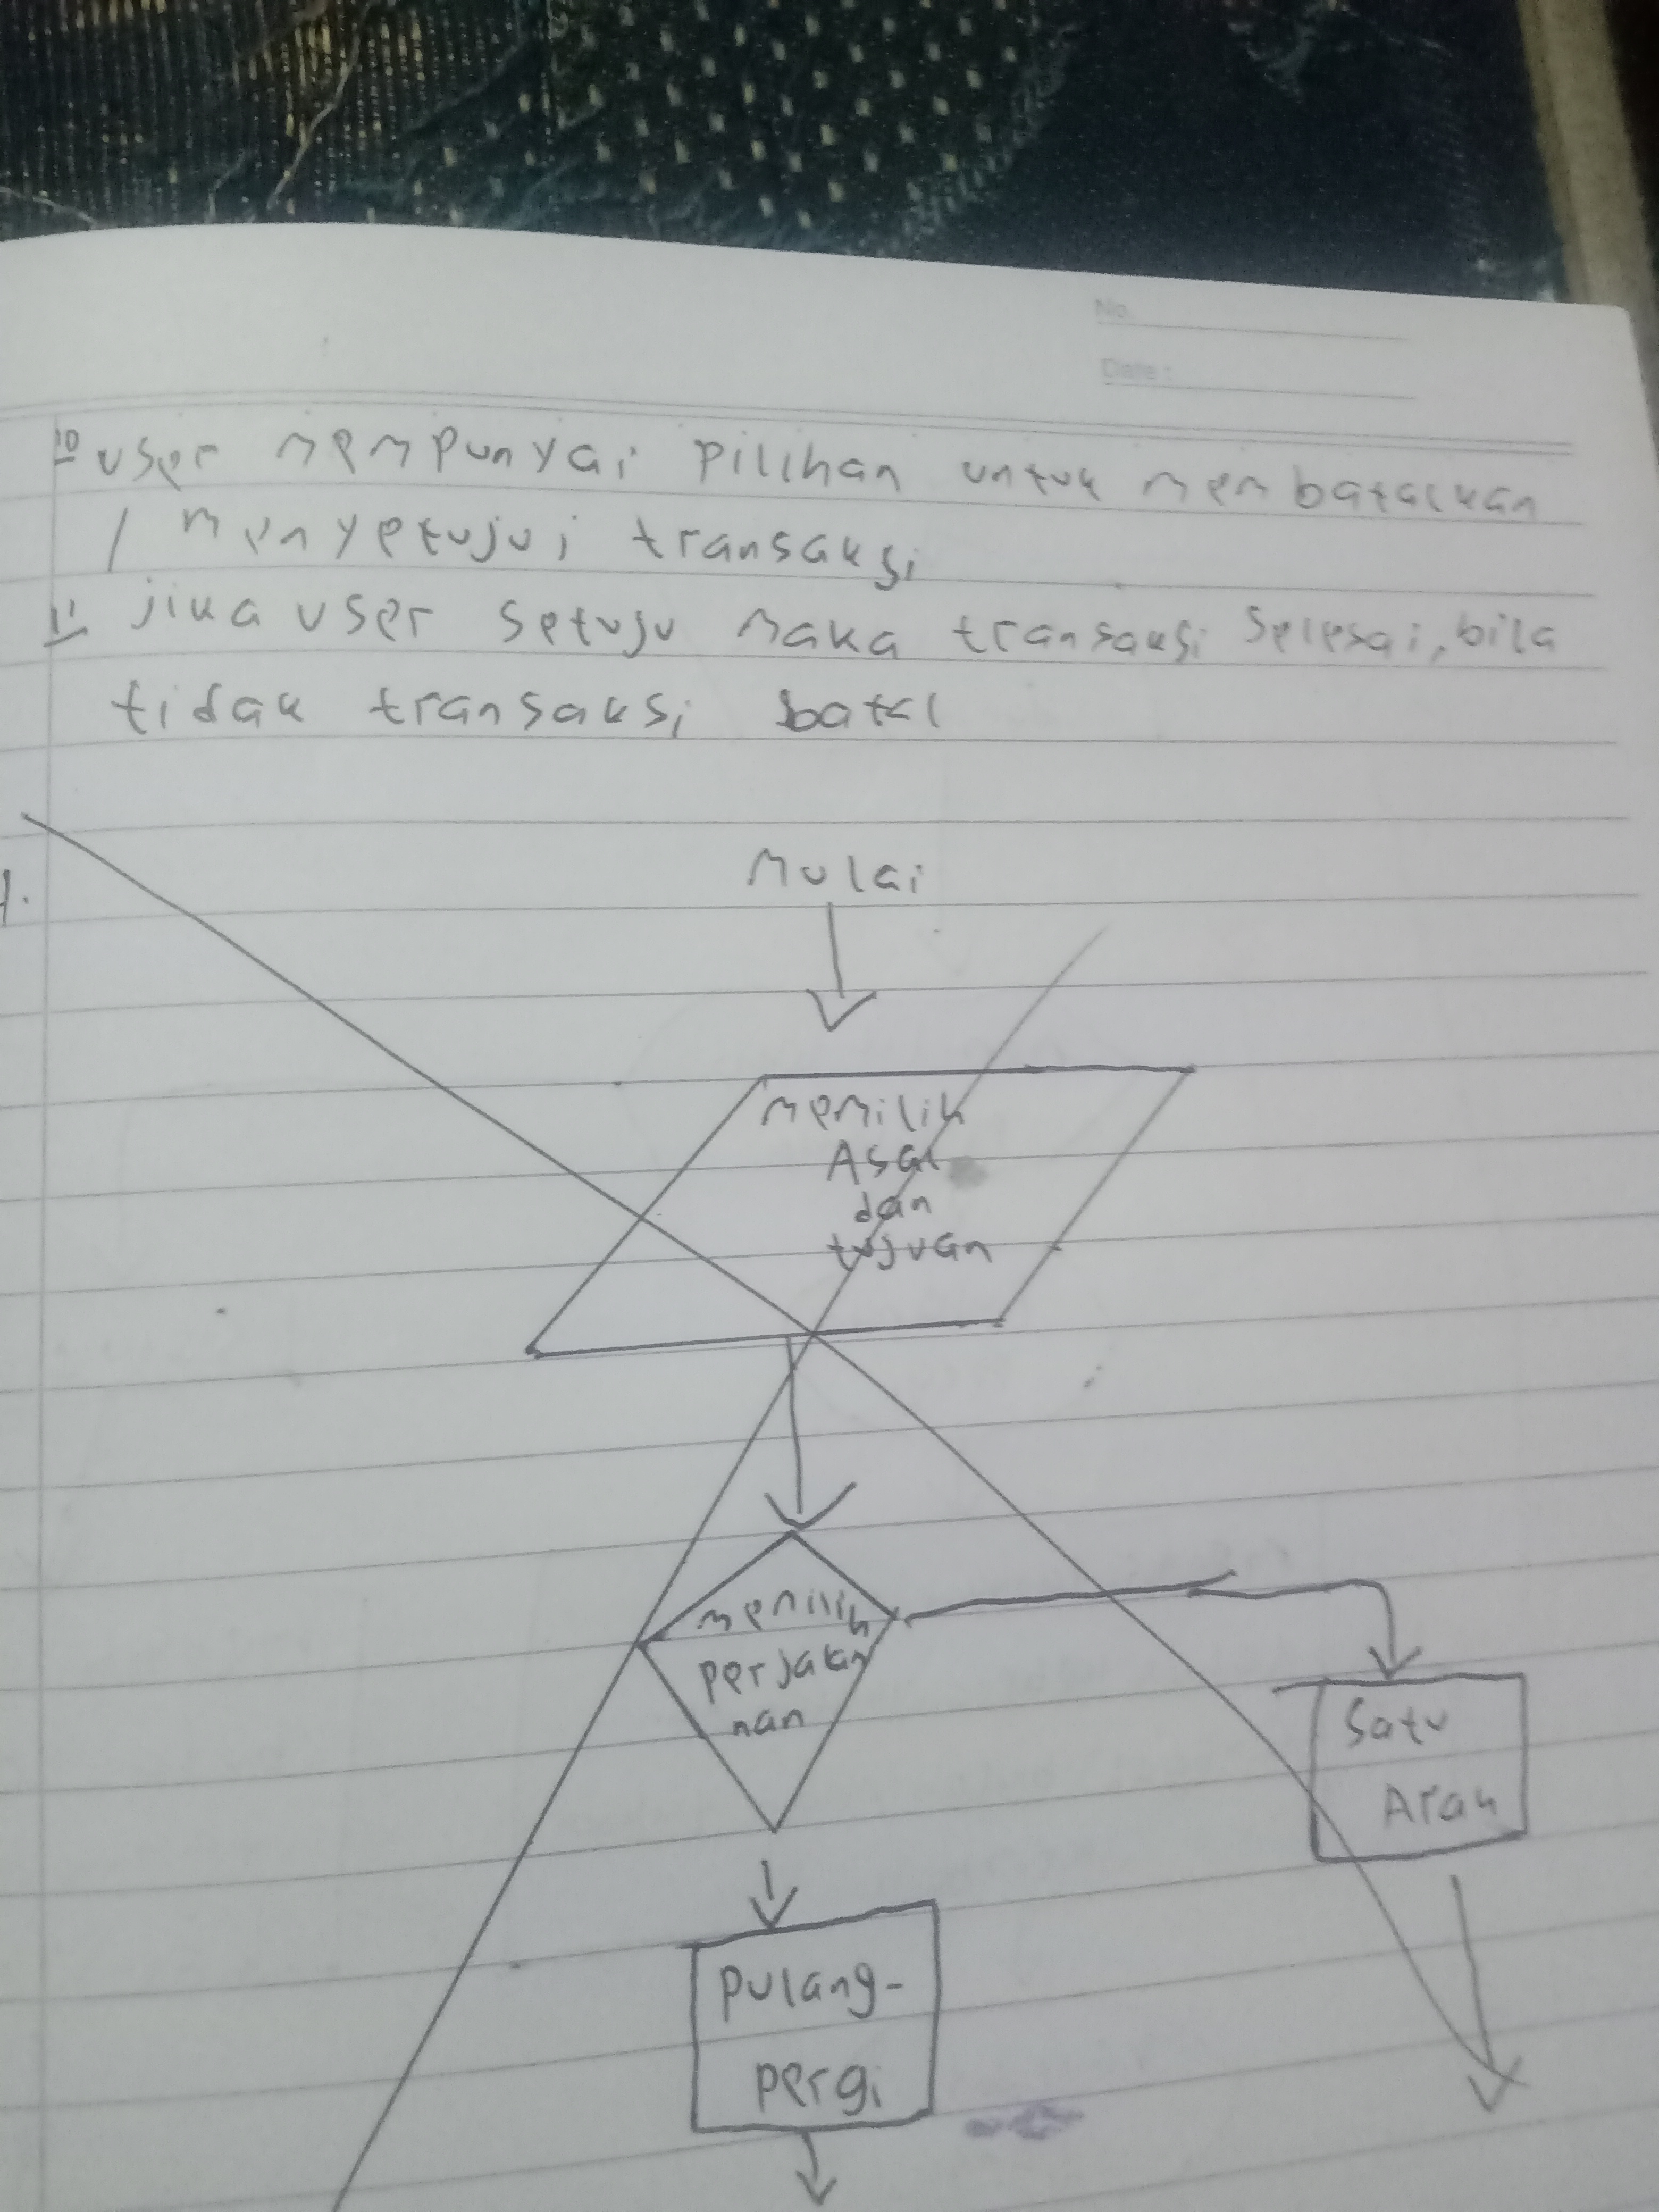 No.
Date :
10 user mempunyai pilihan untuk membatalkan
/ menyetujui transaksi
11 jika user setuju maka transaksi selesai, bila
tidak transaksi batal
Mulai
memilih
Asal
dan
tujuan
memilih
perjalan
nan
Satu
Arah
pulang-
pergi